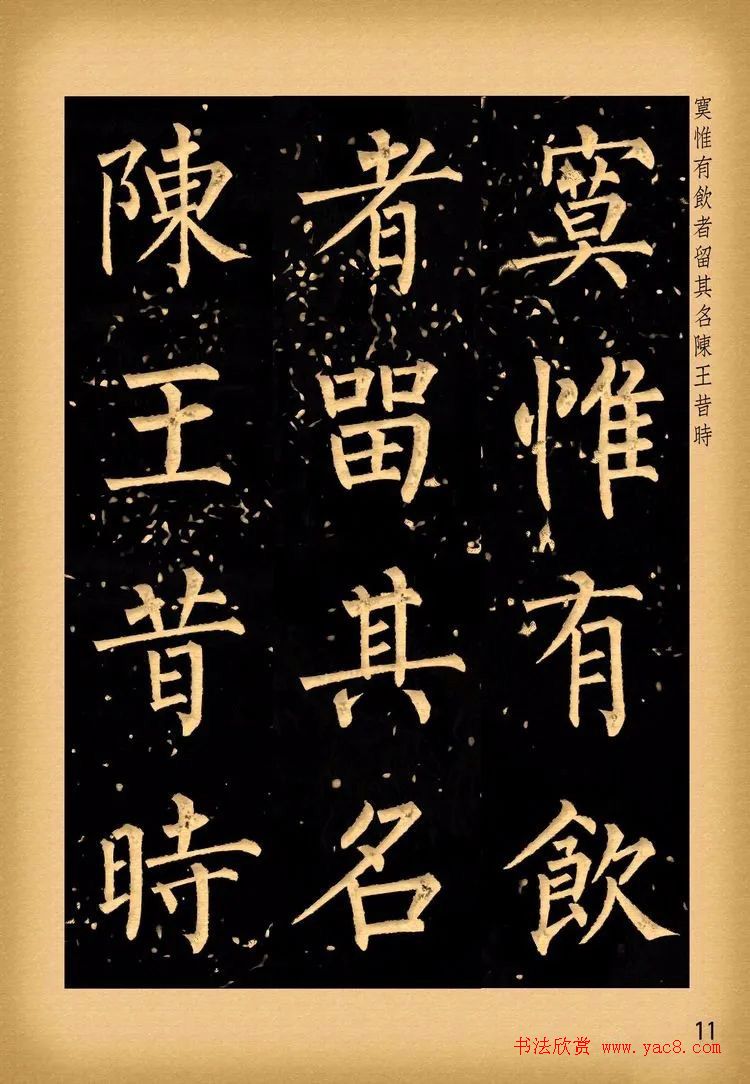 寞惟有飲
者留其名
陳王昔時
寞惟有飲者留其名陳王昔時
11
书法欣赏 www.yac8.com